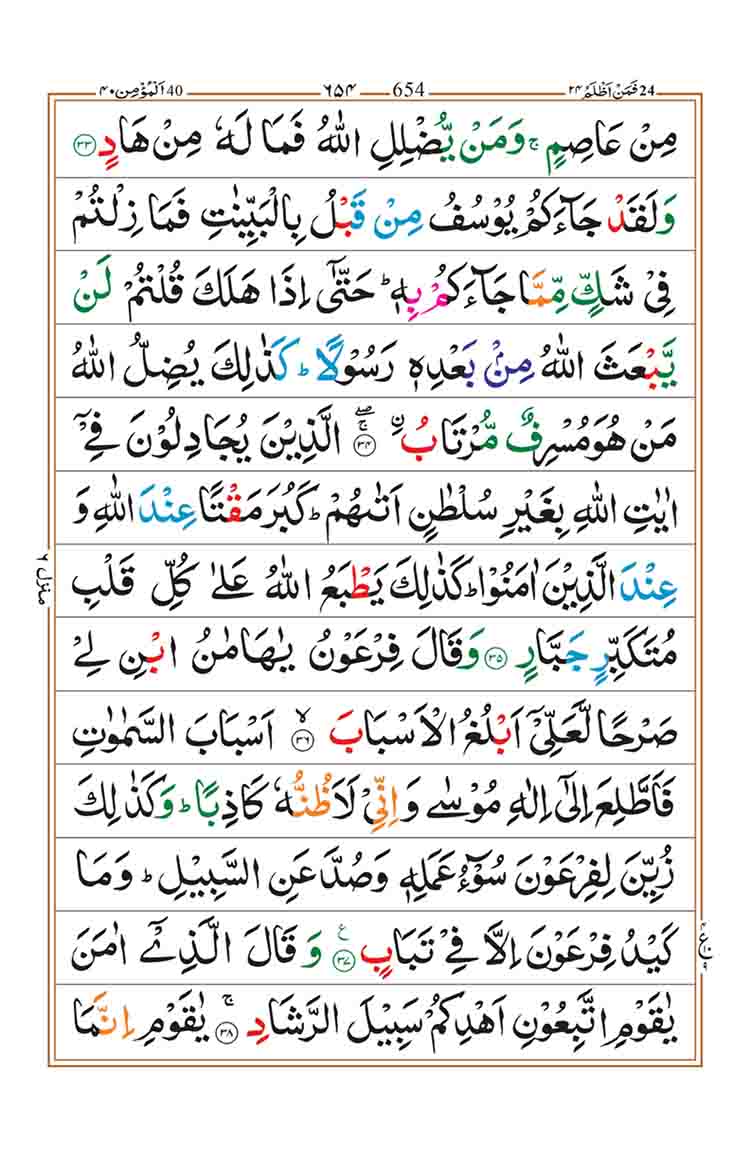 فَمَنْ اَظْلَمُ ۲۴ 24 654 ٦٥٤ اَلْمُؤْمِن ۴۰ 40
مِنْ عَاصِمٍ ۚ وَمَنْ يُّضْلِلِ اللّٰهُ فَمَا لَهٗ مِنْ هَادٍ ﴿۳۳﴾
وَلَقَدْ جَآءَكُمْ يُوْسُفُ مِنْ قَبْلُ بِالْبَيِّنٰتِ فَمَا زِلْتُمْ
فِيْ شَكٍّ مِّمَّا جَآءَكُمْ بِهٖ ؕ حَتّٰۤى اِذَا هَلَكَ قُلْتُمْ لَنْ
يَّبْعَثَ اللّٰهُ مِنْۢ بَعْدِهٖ رَسُوْلًا ؕ كَذٰلِكَ يُضِلُّ اللّٰهُ
مَنْ هُوَ مُسْرِفٌ مُّرْتَابُ ۨ ﴿۳۴﴾ ۚۖ الَّذِيْنَ يُجَادِلُوْنَ فِيْۤ
اٰيٰتِ اللّٰهِ بِغَيْرِ سُلْطٰنٍ اَتٰىهُمْ ؕ كَبُرَ مَقْتًا عِنْدَ اللّٰهِ وَ
عِنْدَ الَّذِيْنَ اٰمَنُوْا ؕ كَذٰلِكَ يَطْبَعُ اللّٰهُ عَلٰى كُلِّ قَلْبِ
مُتَكَبِّرٍ جَبَّارٍ ﴿۳۵﴾ وَقَالَ فِرْعَوْنُ يٰهَامٰنُ ابْنِ لِيْ
صَرْحًا لَّعَلِّيْۤ اَبْلُغُ الْاَسْبَابَ ۙ ﴿۳۶﴾ اَسْبَابَ السَّمٰوٰتِ
فَاَطَّلِعَ اِلٰۤى اِلٰهِ مُوْسٰى وَاِنِّيْ لَاَظُنُّهٗ كَاذِبًا ؕ وَكَذٰلِكَ
زُيِّنَ لِفِرْعَوْنَ سُوْٓءُ عَمَلِهٖ وَصُدَّ عَنِ السَّبِيْلِ ؕ وَمَا
كَيْدُ فِرْعَوْنَ اِلَّا فِيْ تَبَابٍ ﴿۳۷﴾ ع وَقَالَ الَّذِيْۤ اٰمَنَ
يٰقَوْمِ اتَّبِعُوْنِ اَهْدِكُمْ سَبِيْلَ الرَّشَادِ ۚ ﴿۳۸﴾ يٰقَوْمِ اِنَّمَا
منزل ٦